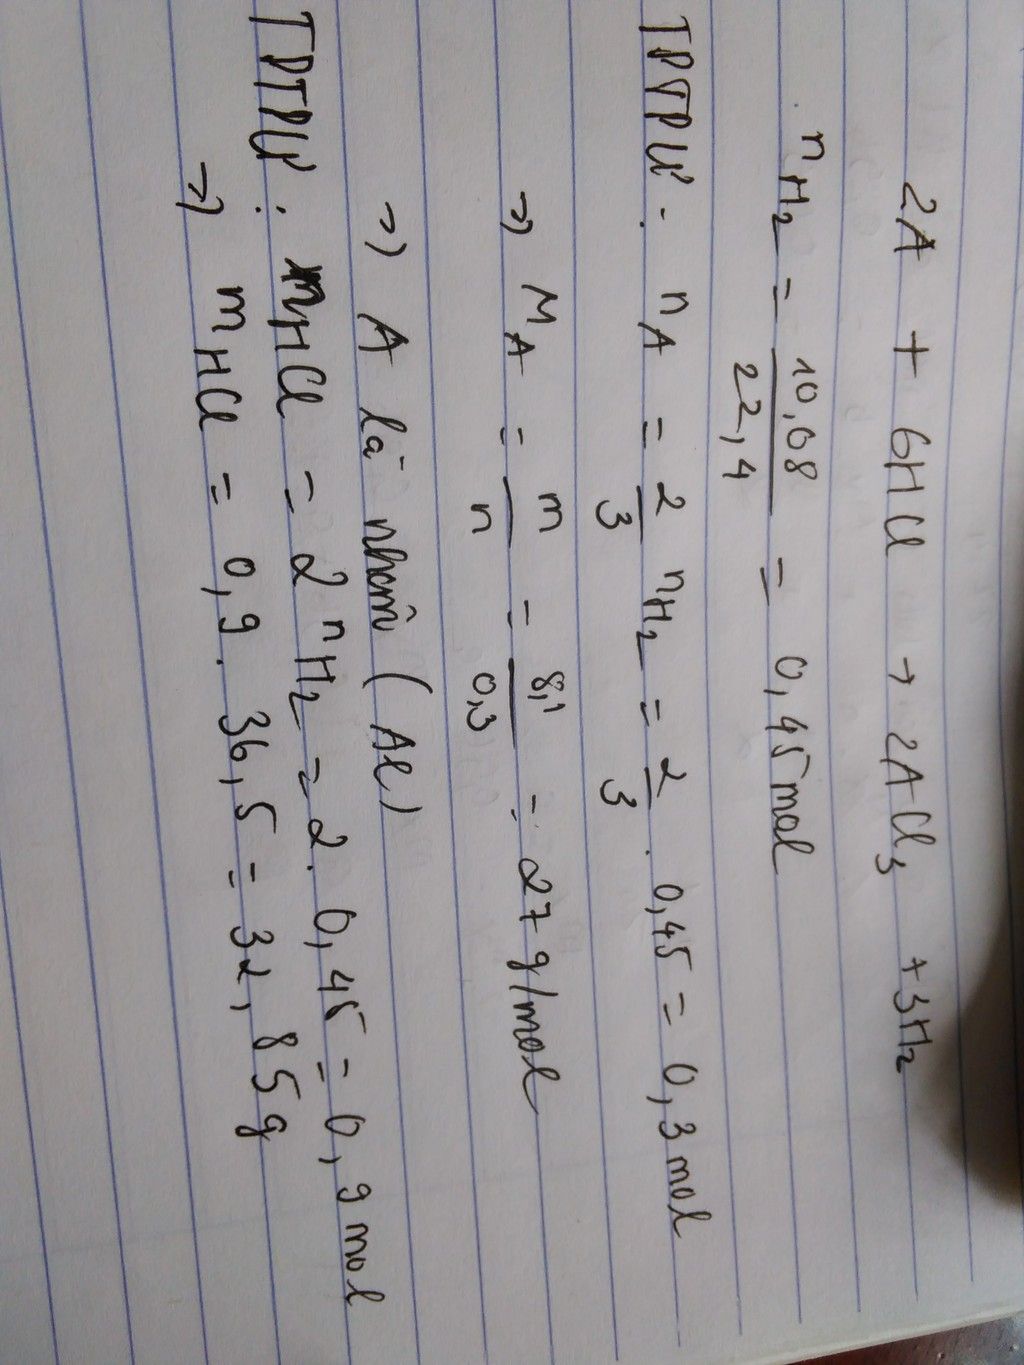 2A + 6HCl → 2ACl₃ + 3H₂
nH₂ = 10,08/22,4 = 0,45mol
TPTPU: nA = 2/3 nH₂ = 2/3 . 0,45 = 0,3mol
=> MA = m/n = 8,1/0,3 = 27g/mol
=> A là nhôm (Al)
TPTPU: mHCl = 2nH₂ = 2. 0,45 = 0,9mol
=> mHCl = 0,9. 36,5 = 32,85g